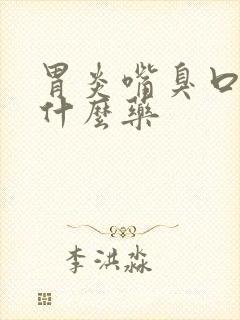 胃炎嘴臭口
什麼藥
李洪淼